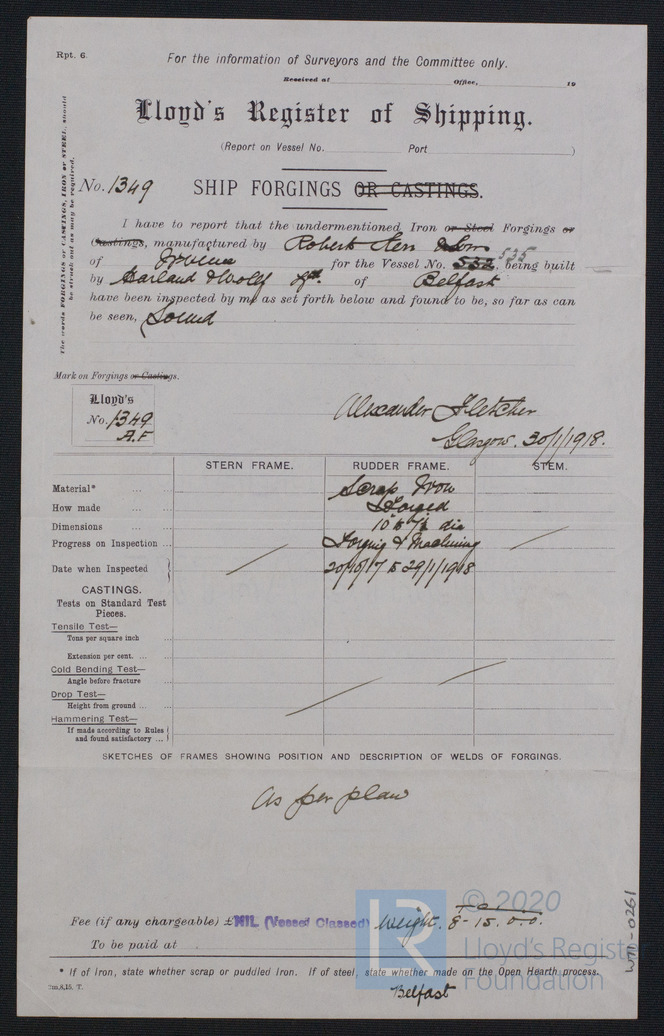 Rpt. 6.
For the information of Surveyors and the Committee only.
Received at Office, 19
Lloyd's Register of Shipping.
(Report on Vessel No. Port )
The words FORGINGS or CASTINGS, IRON or STEEL, should be struck out as may be required.
No. 1349 SHIP FORGINGS OR CASTINGS.
I have to report that the undermentioned Iron or Steel Forgings or
Castings, manufactured by Robert Kerr & Son
535
of Irvine for the Vessel No. 532, being built
by Harland & Wolff Ltd. of Belfast
have been inspected by me as set forth below and found to be, so far as can
be seen, Sound
Mark on Forgings or Castings.
Lloyd's
No. 1349
A.F
Alexander Fletcher
Glasgow. 30/1/1918.
STERN FRAME. RUDDER FRAME. STEM.
Material* ... Scrap Iron
How made ... Forged
Dimensions ... dia
Progress on Inspection ... Forging & Machining
Date when Inspected 20/10/17 to 29/1/1918
CASTINGS.
Tests on Standard Test
Pieces.
Tensile Test—
Tons per square inch
Extension per cent. ...
Cold Bending Test—
Angle before fracture
Drop Test—
Height from ground ...
Hammering Test—
If made according to Rules
and found satisfactory ...
SKETCHES OF FRAMES SHOWING POSITION AND DESCRIPTION OF WELDS OF FORGINGS.
As per plan
Fee (if any chargeable) £ NIL (Vessel Classed) Weight. 8-15.0-0.
To be paid at
* If of iron, state whether scrap or puddled iron. If of steel, state whether made on the Open Hearth process.
7m.8,15. T.
Belfast
W711-0261
LR
© 2020
Lloyd's Register
Foundation